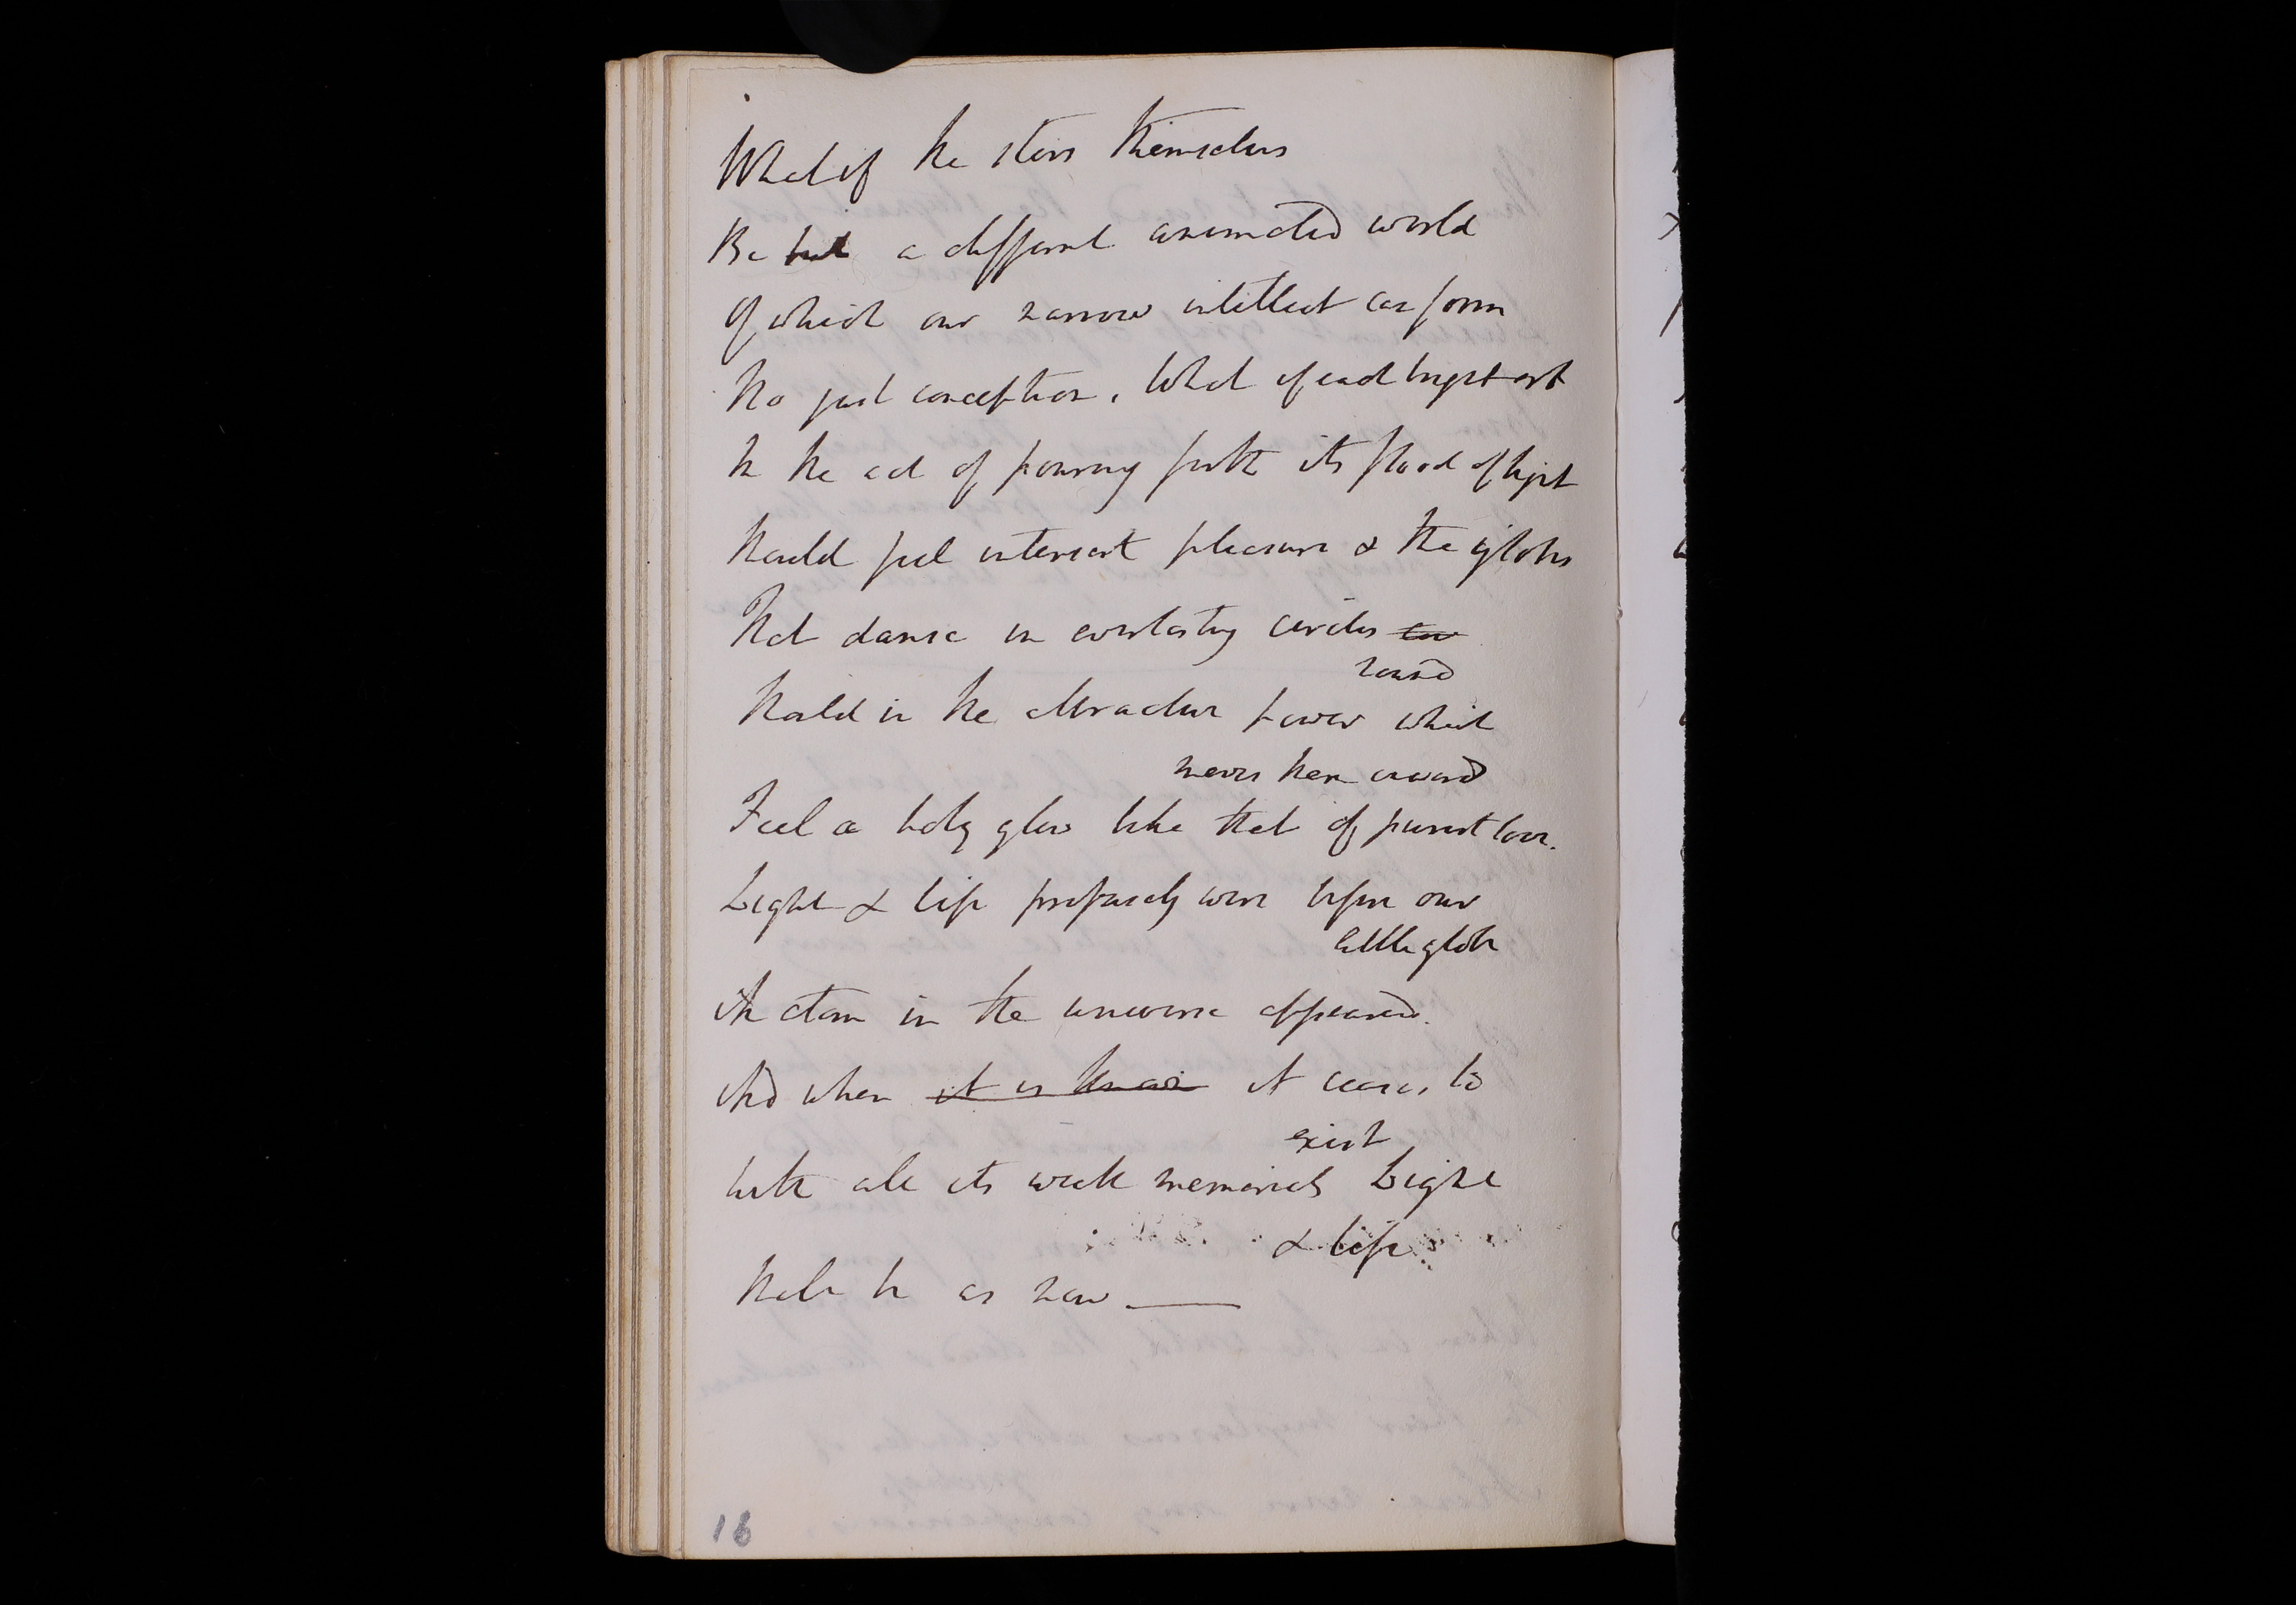 What if the stars themselves
Be but a different animated world
Of which our narrow intellect can form
No just conception. What if each bright orb
In the act of pouring forth its flood of light
Should feel intensest pleasure & the globes
That dance in everlasting circles
round
Should in the attractive power which
moves them onward
Feel a holy glow like that of purest love.
Light & life profusely were before our
little globe
An atom in the universe appeared.
And when it is it ceases to
exist
With all its weak memorials Light
& life
Shall be as now
16